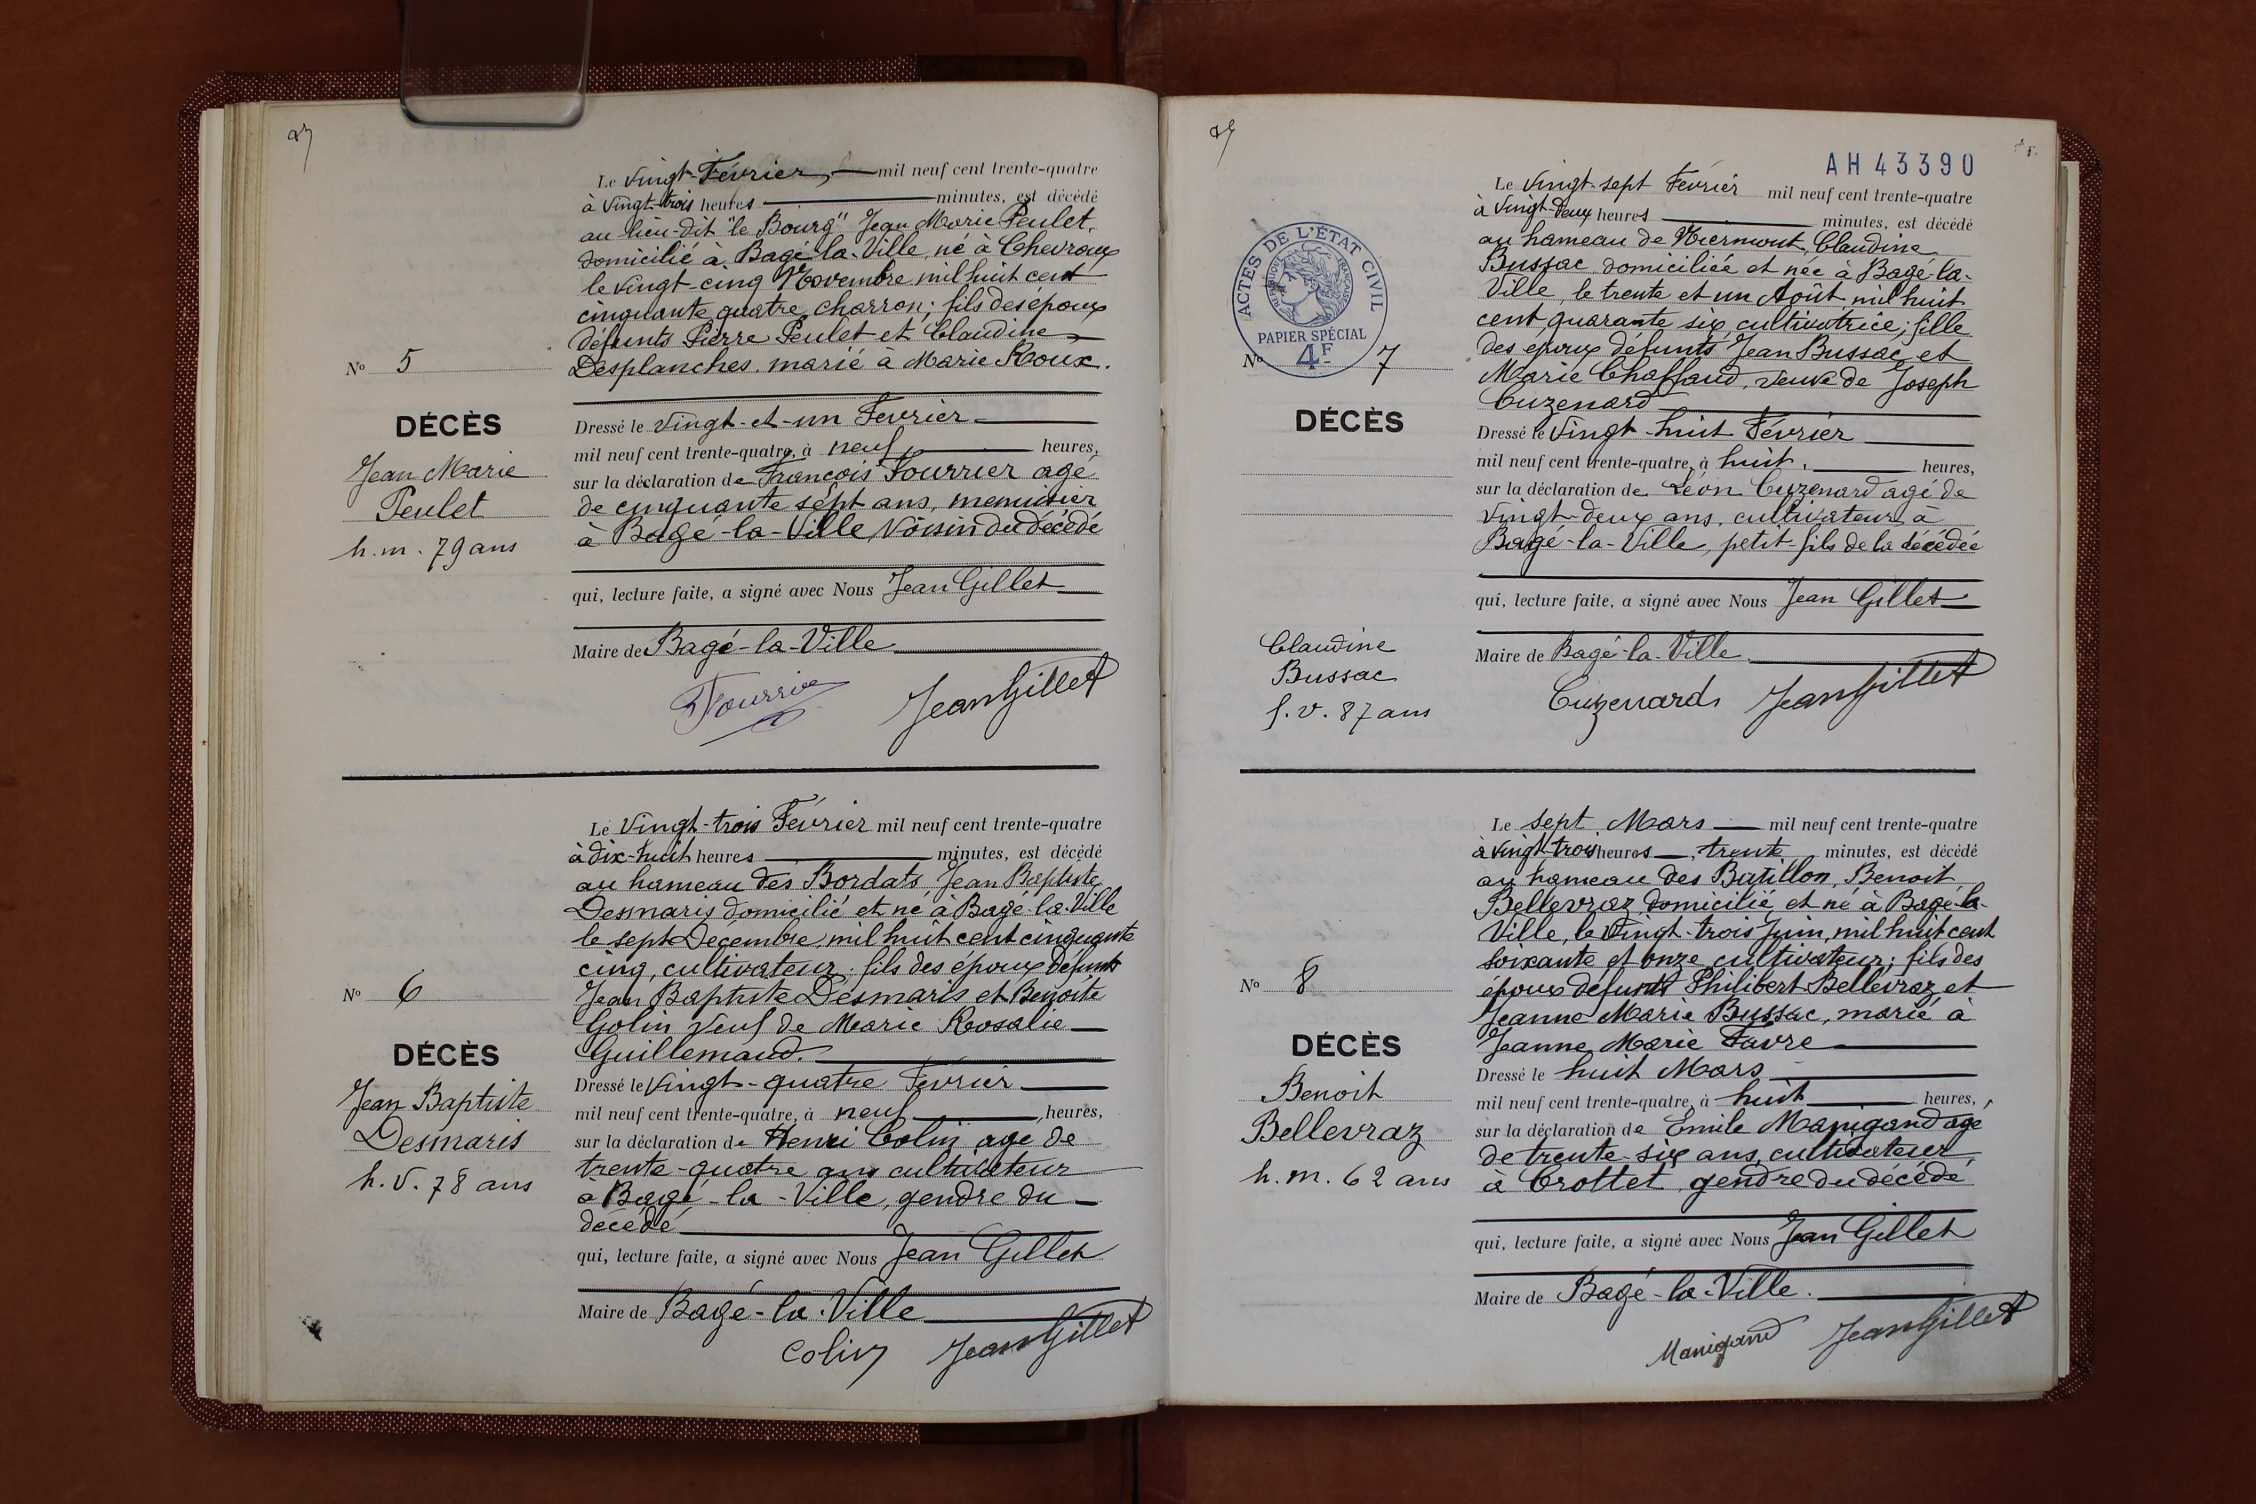 Le vingt Février, mil neuf cent trente-quatre
à vingt trois heures minutes, est décédé
au lieu-dit "le Bourg" Jean Marie Peulet,
domicilié à Bagé-la-Ville, né à Chevroux
le vingt-cinq Novembre mil huit cent
cinquante quatre, charron; fils des époux
défunts Pierre Peulet et Claudine
Desplanches. marié à Marie Roux.
No 5
DÉCÈS
Jean Marie
Peulet
h.m. 79 ans
Dressé le vingt-et-un Fevrier
mil neuf cent trente-quatre, à neuf heures,
sur la déclaration de François Fourrier agé
de cinquante sept ans, menuisier
à Bagé-la-Ville, Voisin du décédé
qui, lecture faite, a signé avec Nous Jean Gillet
Maire de Bagé-la-Ville
Fourrier Jean Gillet
Le Vingt-trois Février mil neuf cent trente-quatre
à dix-huit heures minutes, est décédé
au hameau des Bordats Jean Baptiste
Desmaris domicilié et né à Bagé-la-Ville
le sept Décembre mil huit cent cinquante
cinq, cultivateur; fils des époux défunts
Jean Baptiste Desmaris et Benoite
Golin Veuf de Marie Rosalie
Guillemaud.
No 6
DÉCÈS
Jean Baptiste
Desmaris
h.v. 78 ans
Dressé le Vingt-quatre Fevrier
mil neuf cent trente-quatre, à neuf heures,
sur la déclaration de Henri Colin agé de
trente-quatre ans cultivateur
à Bagé-la-Ville, gendre du
décédé
qui, lecture faite, a signé avec Nous Jean Gillet
Maire de Bagé-la-Ville
Colin Jean Gillet
AH 43390
Le Vingt-sept Février mil neuf cent trente-quatre
à Vingt-deux heures minutes, est décédé
au hameau de Claudine
Bussac domiciliée et née à Bagé-la-
Ville, le trente et un Août mil huit
cent quarante six, cultivatrice; fille
des époux défunts Jean Bussac et
Marie Chaffaud, veuve de Joseph
Cuzenard
ACTES DE L'ÉTAT CIVIL
RÉPUBLIQUE FRANÇAISE
PAPIER SPÉCIAL
4F
No 7
DÉCÈS
Dressé le Vingt-huit Février
mil neuf cent trente-quatre, à huit, heures,
sur la déclaration de Léon Cuzenard agé de
Vingt-deux ans, cultivateur à
Bagé-la-Ville, petit-fils de la décédée
qui, lecture faite, a signé avec Nous Jean Gillet
Maire de Bagé-la-Ville
Claudine
Bussac
f.v. 87 ans
Cuzenard Jean Gillet
Le sept Mars mil neuf cent trente-quatre
à vingt trois heures, trente minutes, est décédé
au hameau des Batillon, Benoit
Bellevraz domicilié et né à Bagé-la-
Ville, le Vingt-trois Juin, mil huit cent
soixante et onze, cultivateur; fils des
époux défunts Philibert Bellevraz et
Jeanne Marie Bussac, marié à
Jeanne Marie Favre
No 8
DÉCÈS
Benoit
Bellevraz
h.m. 62 ans
Dressé le huit Mars
mil neuf cent trente-quatre, à huit heures,
sur la déclaration de Emile Manigand agé
de trente-six ans, cultivateur
à Crottet, gendre du décédé
qui, lecture faite, a signé avec Nous Jean Gillet
Maire de Bagé-la-Ville.
Manigand Jean Gillet